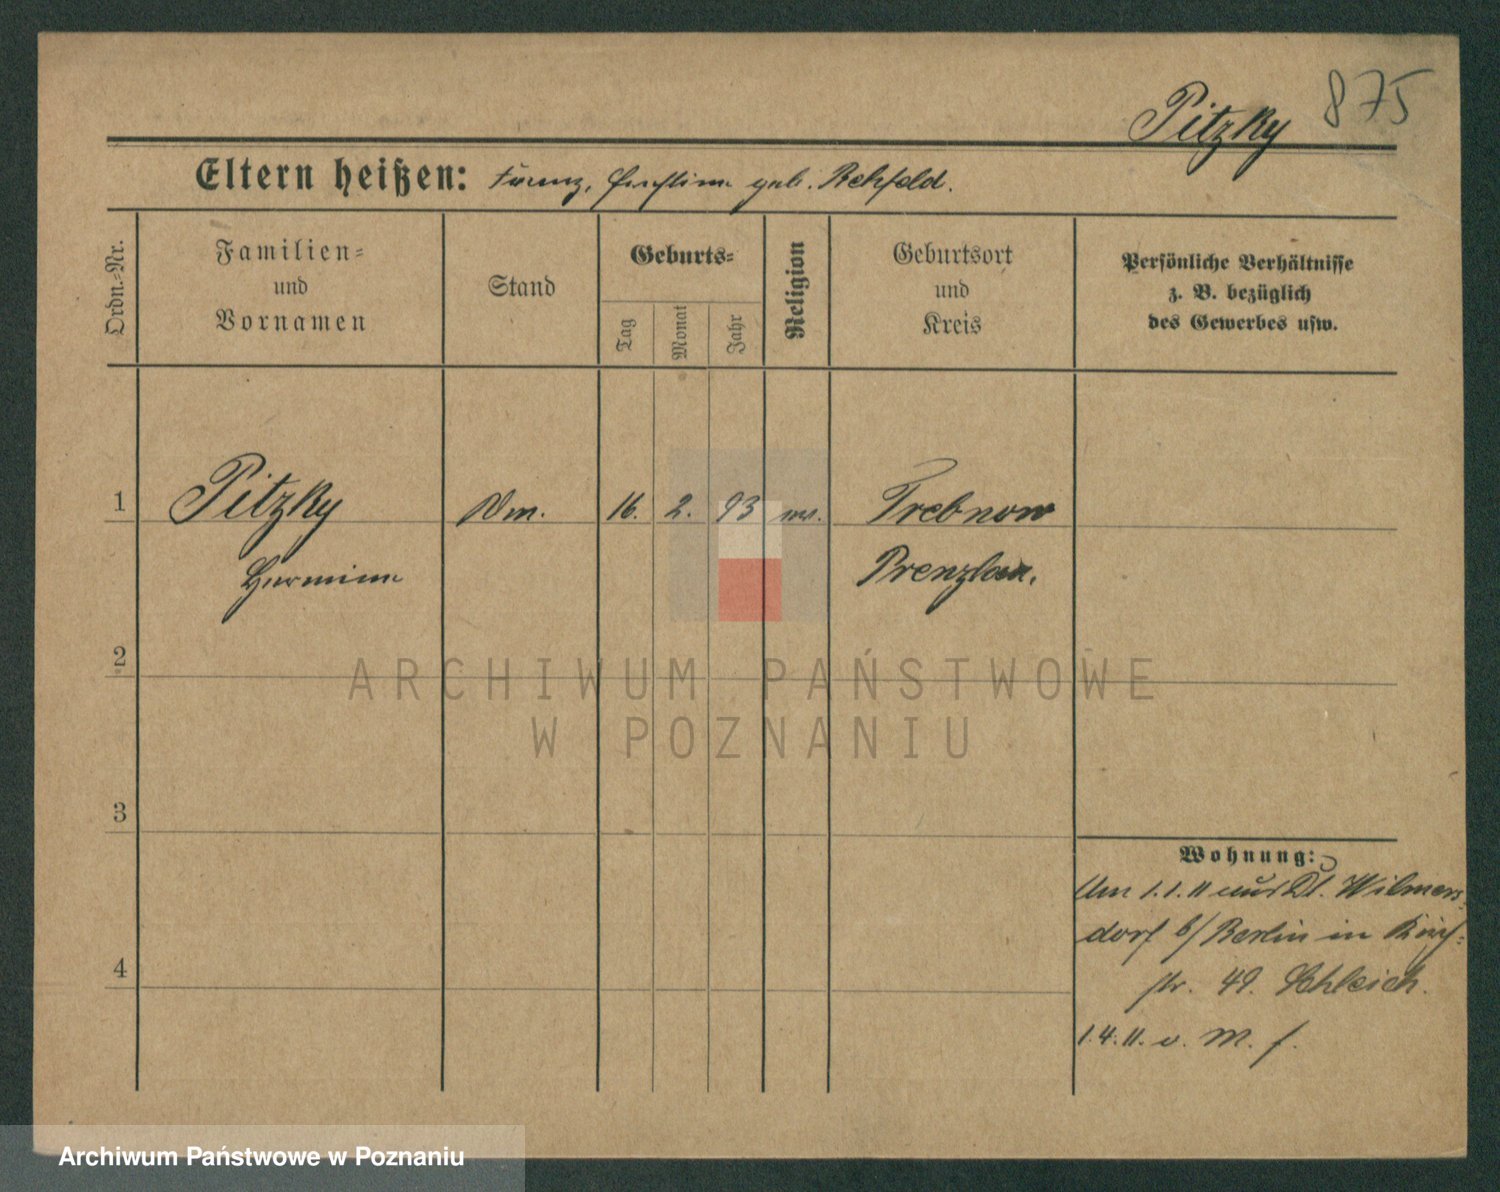 Pitzky 875
Eltern heißen: Franz, geb. Rehfeld.
Ordn.=Nr.
Familien=
und
Vornamen
Stand
Geburts=
Tag
Monat
Jahr
Religion
Geburtsort
und
Kreis
Persönliche Verhältnisse
z. B. bezüglich
des Gewerbes usw.
1 Pitzky 16. 2. 93 Trebnow
Hermine Prenzlau.
2
3
4
Wohnung:
Am 1.1.11 Dt. Wilmers-
dorf b/ Berlin in Kirch-
str. 49. Schleich.
1.4.11. v. M. f.
ARCHIWUM PAŃSTWOWE
W POZNANIU
Archiwum Państwowe w Poznaniu